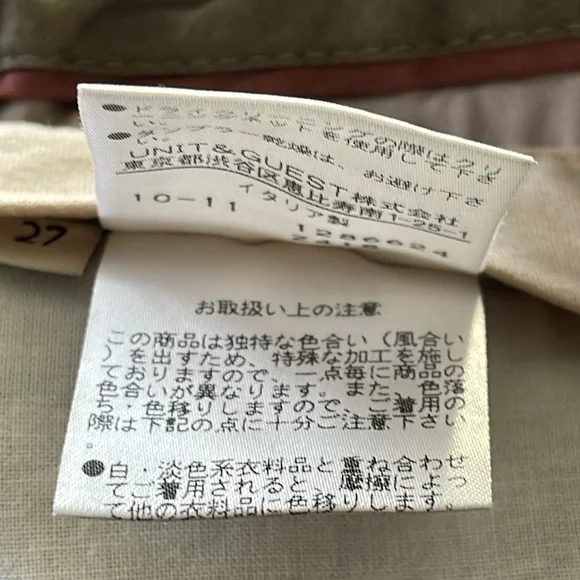 ●ドライクリーニングの際はクリ
ーニングネットを使用して下さ
い。
●タンブラー乾燥は、お避け下さ
い。
UNIT&GUEST株式会社
東京都渋谷区恵比寿南1-25-1
イタリア製
10-11
1286624
27
お取扱い上の注意
この商品は独特な色合い(風合い
)を出すため、特殊な加工を施し
ておりますので、一点毎に商品の
色合いが異なります。また、色落
ち・色移りしますので、ご着用の
際は下記の点に十分ご注意下さい
。
●白・淡色系衣料品と重ね合わせ
てご着用されると、摩擦によっ
て他の衣料品に色移りします。